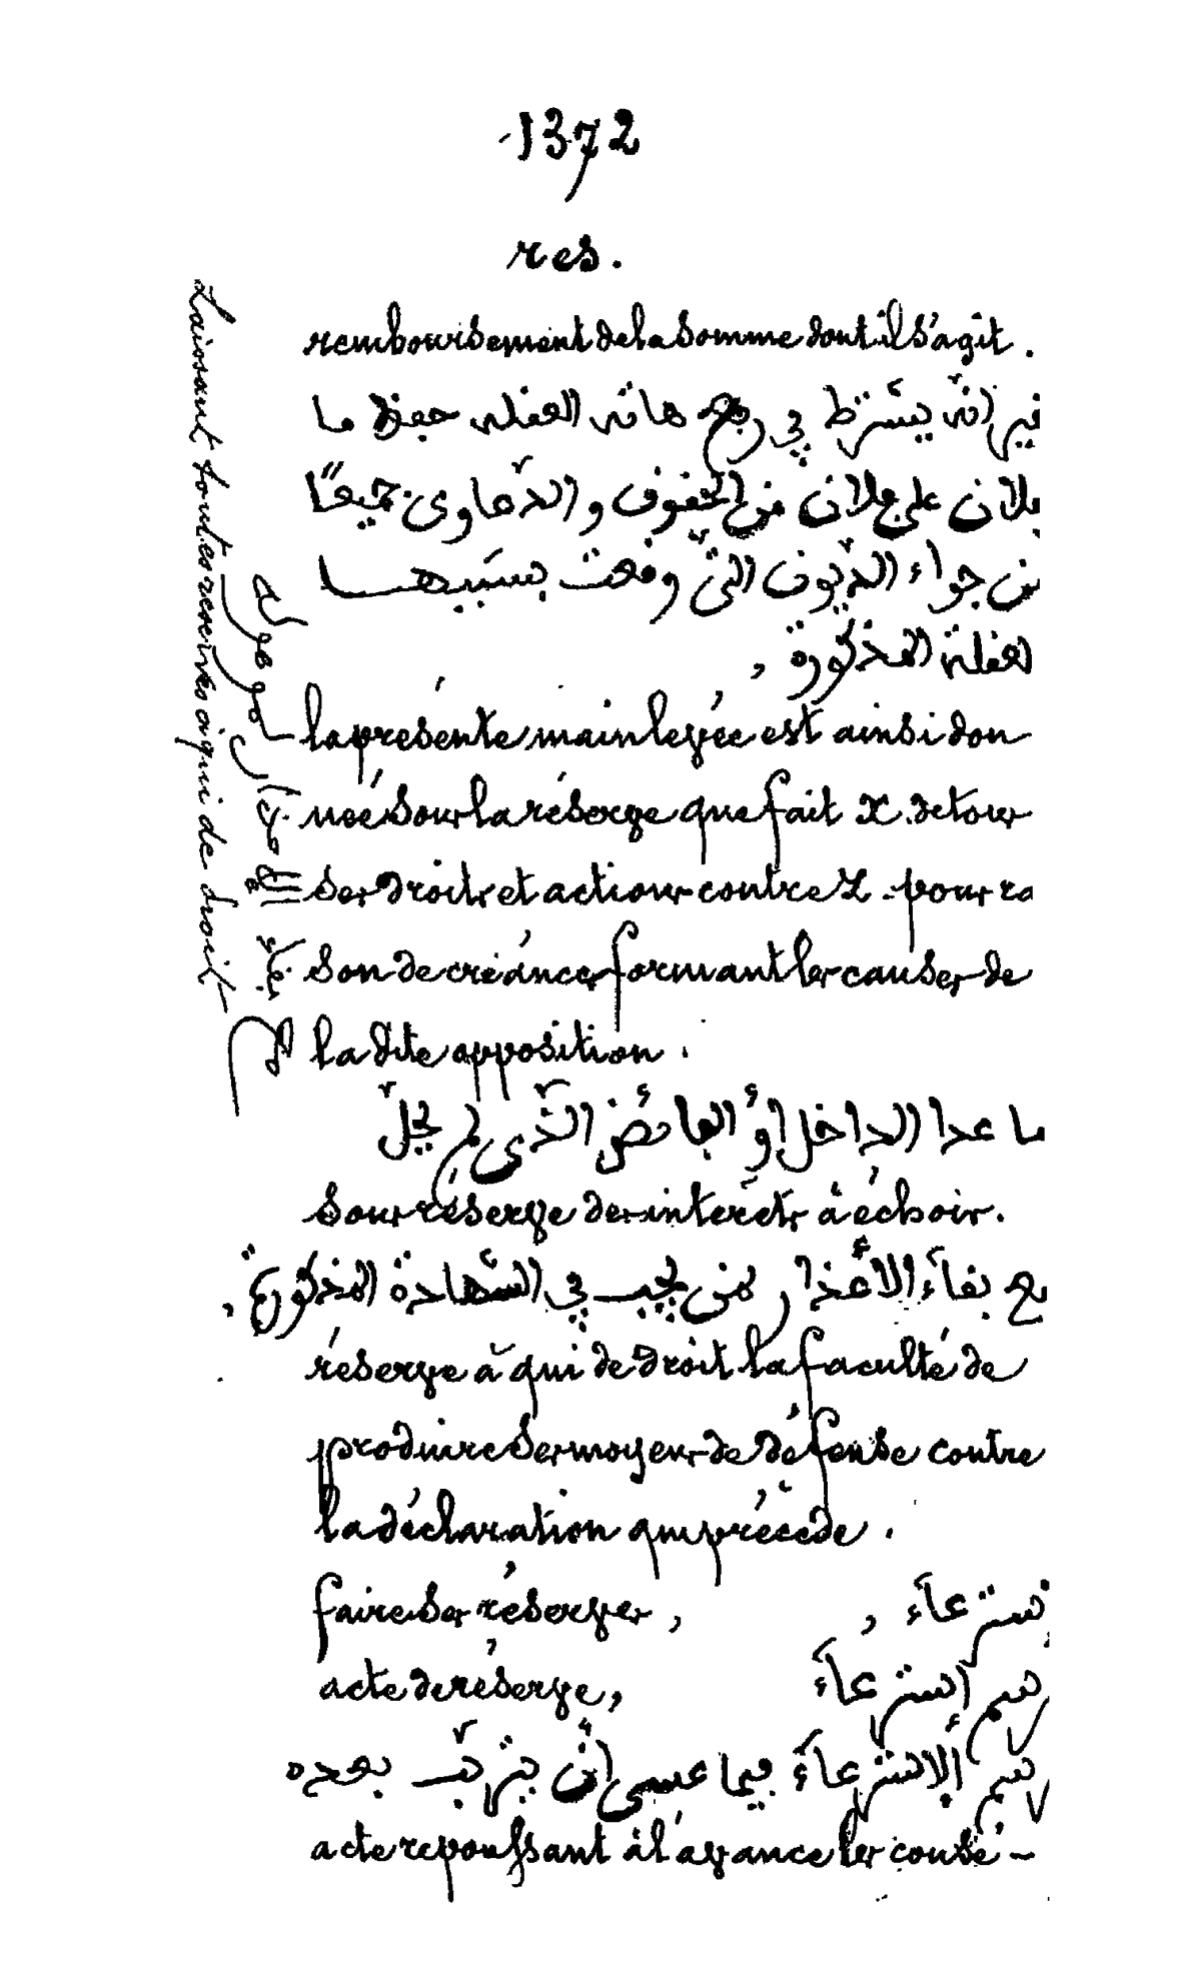 1372
res.
remboursement de la somme dont il s'agit.
غير انّه يشترط في رفع هاته العقله حفظ ما
بلان على فلان من الحقوق والدّعاوى جميعًا
من جراء الديّون التّي وقعت بسببهـا
العقلة المذكورة,
la présente mainlevée est ainsi don
née sour la réserve que fait X. de tour
ser droitr et actionr contre Z. pour ra
son de créancer formant ler causer de
la dite opposition.
ما عدا الداخل أو الفائض الذّي لم يحلّ
sour réserve der intérêtr à échoir.
مع بقاء الأعذار لمن يجب في الشّهادة المذكورة.
réserve à qui de droit la faculté de
produire ser moyenr de défense contre
la déclaration qui précède.
faire ser réserver, إسترعآء,
acte de réserve, رسم إسترعآء
رسم ألإسترعآء فيما عسى انّ يترتّب بعده
acte repoussant à l'avance ler consé-
Laissant toutes reserves à qui de droit